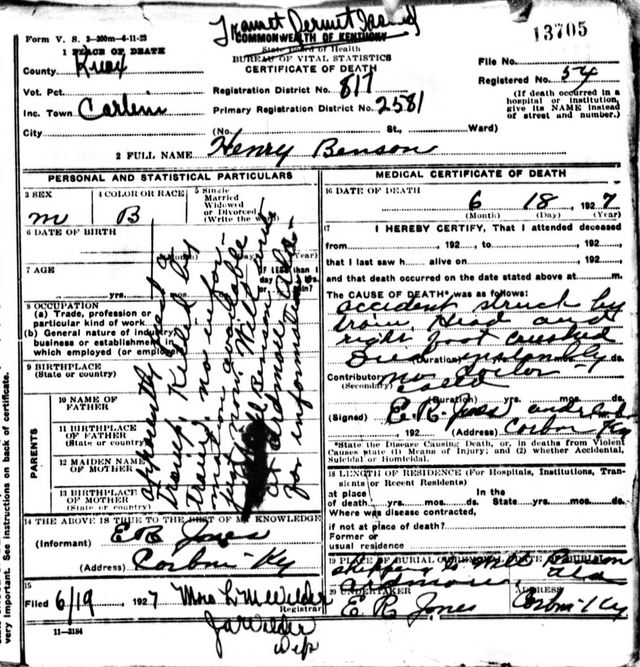 Transit Permit Issued
13705
Form V. S. 2-200m-6-11-23
COMMONWEALTH OF KENTUCKY
State Board of Health
BUREAU OF VITAL STATISTICS
CERTIFICATE OF DEATH
1 PLACE OF DEATH
County Knox
Vot. Pct.
Inc. Town Corbin
City
Registration District No. 817
Primary Registration District No. 2581
(No. St., Ward)
File No.
Registered No. 54
(If death occurred in a
hospital or institution,
give its NAME instead
of street and number.)
2 FULL NAME Henry Benson
PERSONAL AND STATISTICAL PARTICULARS
3 SEX
m
4 COLOR OR RACE
B
5 Single
Married
Widowed
or Divorced
(Write the
6 DATE OF BIRTH
(Month) (Day) (Year)
7 AGE
yrs. mos.
8 OCCUPATION
(a) Trade, profession or
particular kind of work
(b) General nature of industry
business or establishment in
which employed (or employer)
9 BIRTHPLACE
(State or country)
PARENTS
10 NAME OF
FATHER
11 BIRTHPLACE
OF FATHER
(State or country)
12 MAIDEN NAME
OF MOTHER
13 BIRTHPLACE
OF MOTHER
(State or country)
apparently just a
Tramp Killed by
Train, no infor-
mation available
just now Write
Benson
at Ardmore Ala-
for information
14 THE ABOVE IS TRUE TO THE BEST OF MY KNOWLEDGE
(Informant) E R Jones
(Address) Corbin - Ky
15
Filed 6/19 1927 Mrs L M Wilder
Registrar
J A Wilder
Dep
11-3184
MEDICAL CERTIFICATE OF DEATH
16 DATE OF DEATH
6 18 1927
(Month) (Day) (Year)
17 I HEREBY CERTIFY, That I attended deceased
from 192 , to 192
that I last saw h alive on 192
and that death occurred on the date stated above at m.
The CAUSE OF DEATH* was as follows:
accident struck by
train, Head and
right foot crushed
Died instantly
(Duration) yrs. mos. ds.
Contributory no doctor -
(Secondary) called
(Duration) yrs. mos. ds.
(Signed) E. R. Jones
192 (Address) Corbin Ky
*State the Disease Causing Death, or, in deaths from Violent
Causes state (1) Means of Injury; and (2) whether Accidental,
Suicidal or Homicidal.
18 LENGTH OF RESIDENCE (For Hospitals, Institutions, Tran-
sients or Recent Residents)
at place In the
of death yrs. mos. ds. State yrs. mos. ds.
Where was disease contracted,
if not at place of death?
Former or
usual residence
19 PLACE OF BURIAL OR REMOVAL DATE OF BURIAL
Shipped to Benson
Ardmore, Ala
20 UNDERTAKER ADDRESS
E R Jones Corbin - Ky
very important. See instructions on back of certificate.